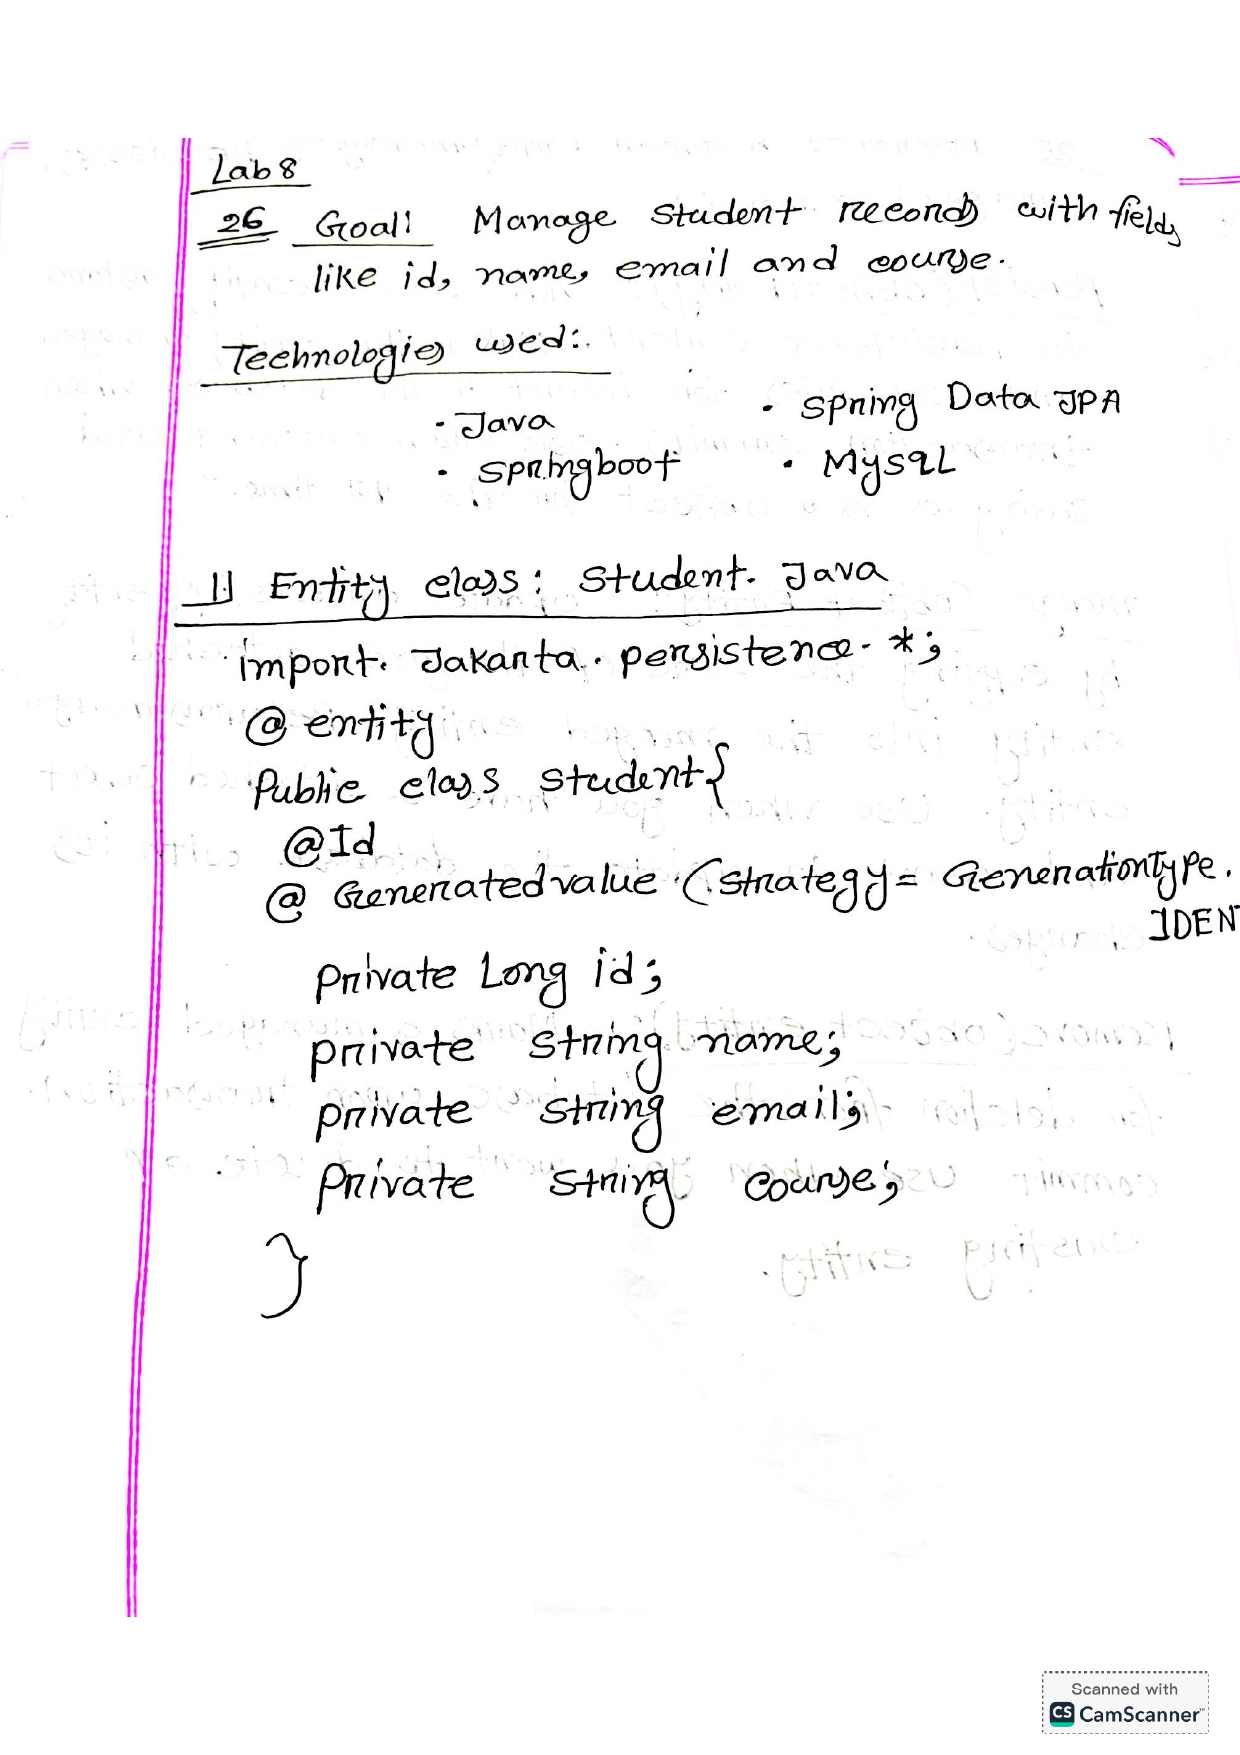 Lab 8
26 Goal! Manage student records with fields
like id, name, email and course.
Technologies used:
· Java · Spring Data JPA
· Springboot · MysqL
1.) Entity class: Student. Java
import. Jakarta. persistence. *;
@ entity
Public class student{
@Id
@ Generatedvalue (strategy= Generationtype.
IDENT
private Long id;
private string name;
private string email;
Private string course;
}
Scanned with
CS CamScanner